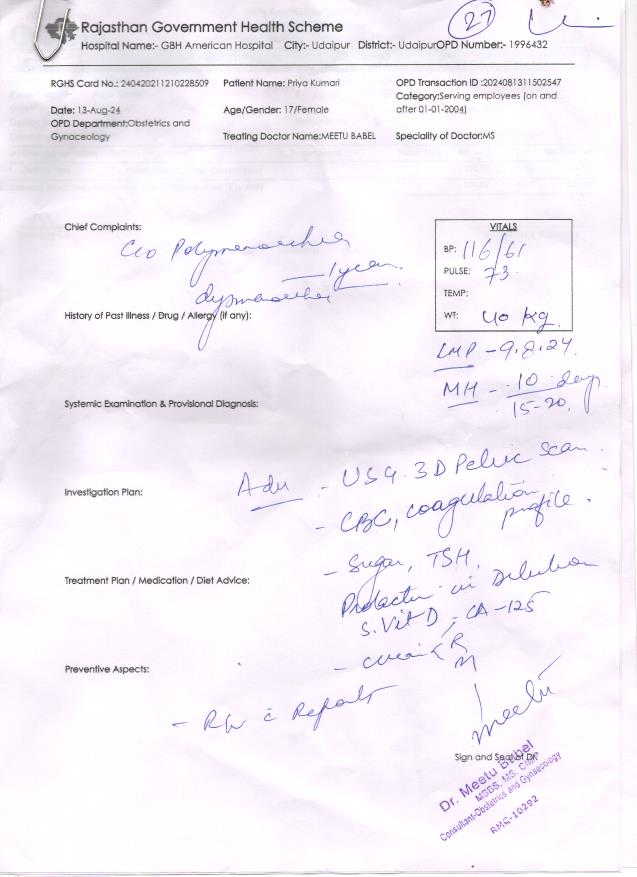 27
Rajasthan Government Health Scheme
Hospital Name:- GBH American Hospital City:- Udaipur District:- UdaipurOPD Number:- 1996432
RGHS Card No.: 240420211210228509 Patient Name: Priya Kumari OPD Transaction ID :2024081311502547
Category:Serving employees (on and after 01-01-2004)
Date: 13-Aug-24 Age/Gender: 17/Female
OPD Department:Obstetrics and Gynaceology
Treating Doctor Name:MEETU BABEL Speciality of Doctor:MS
Chief Complaints:
C/o Polymenorrhea
1 year.
dysmenorrhea
VITALS
BP: 116/61
PULSE: 73
TEMP:
WT: 40 kg
History of Past Illness / Drug / Allergy (if any):
LMP - 9.8.24.
MH - 10 days
15-20.
Systemic Examination & Provisional Diagnosis:
Investigation Plan:
Adv - USG 3D Pelvic Scan
- CBC, coagulation profile.
- Sugar, TSH,
Treatment Plan / Medication / Diet Advice:
Prolactin in Dilution
S. Vit D, CA-125
- Urine R
M
Preventive Aspects:
- R/w c̄ Reports
Meetu
Sign and Seal of Dr.
Dr. Meetu Babel
MBBS, MS, CIMP
Consultant-Obstetrics and Gynaecology
RMC-10292